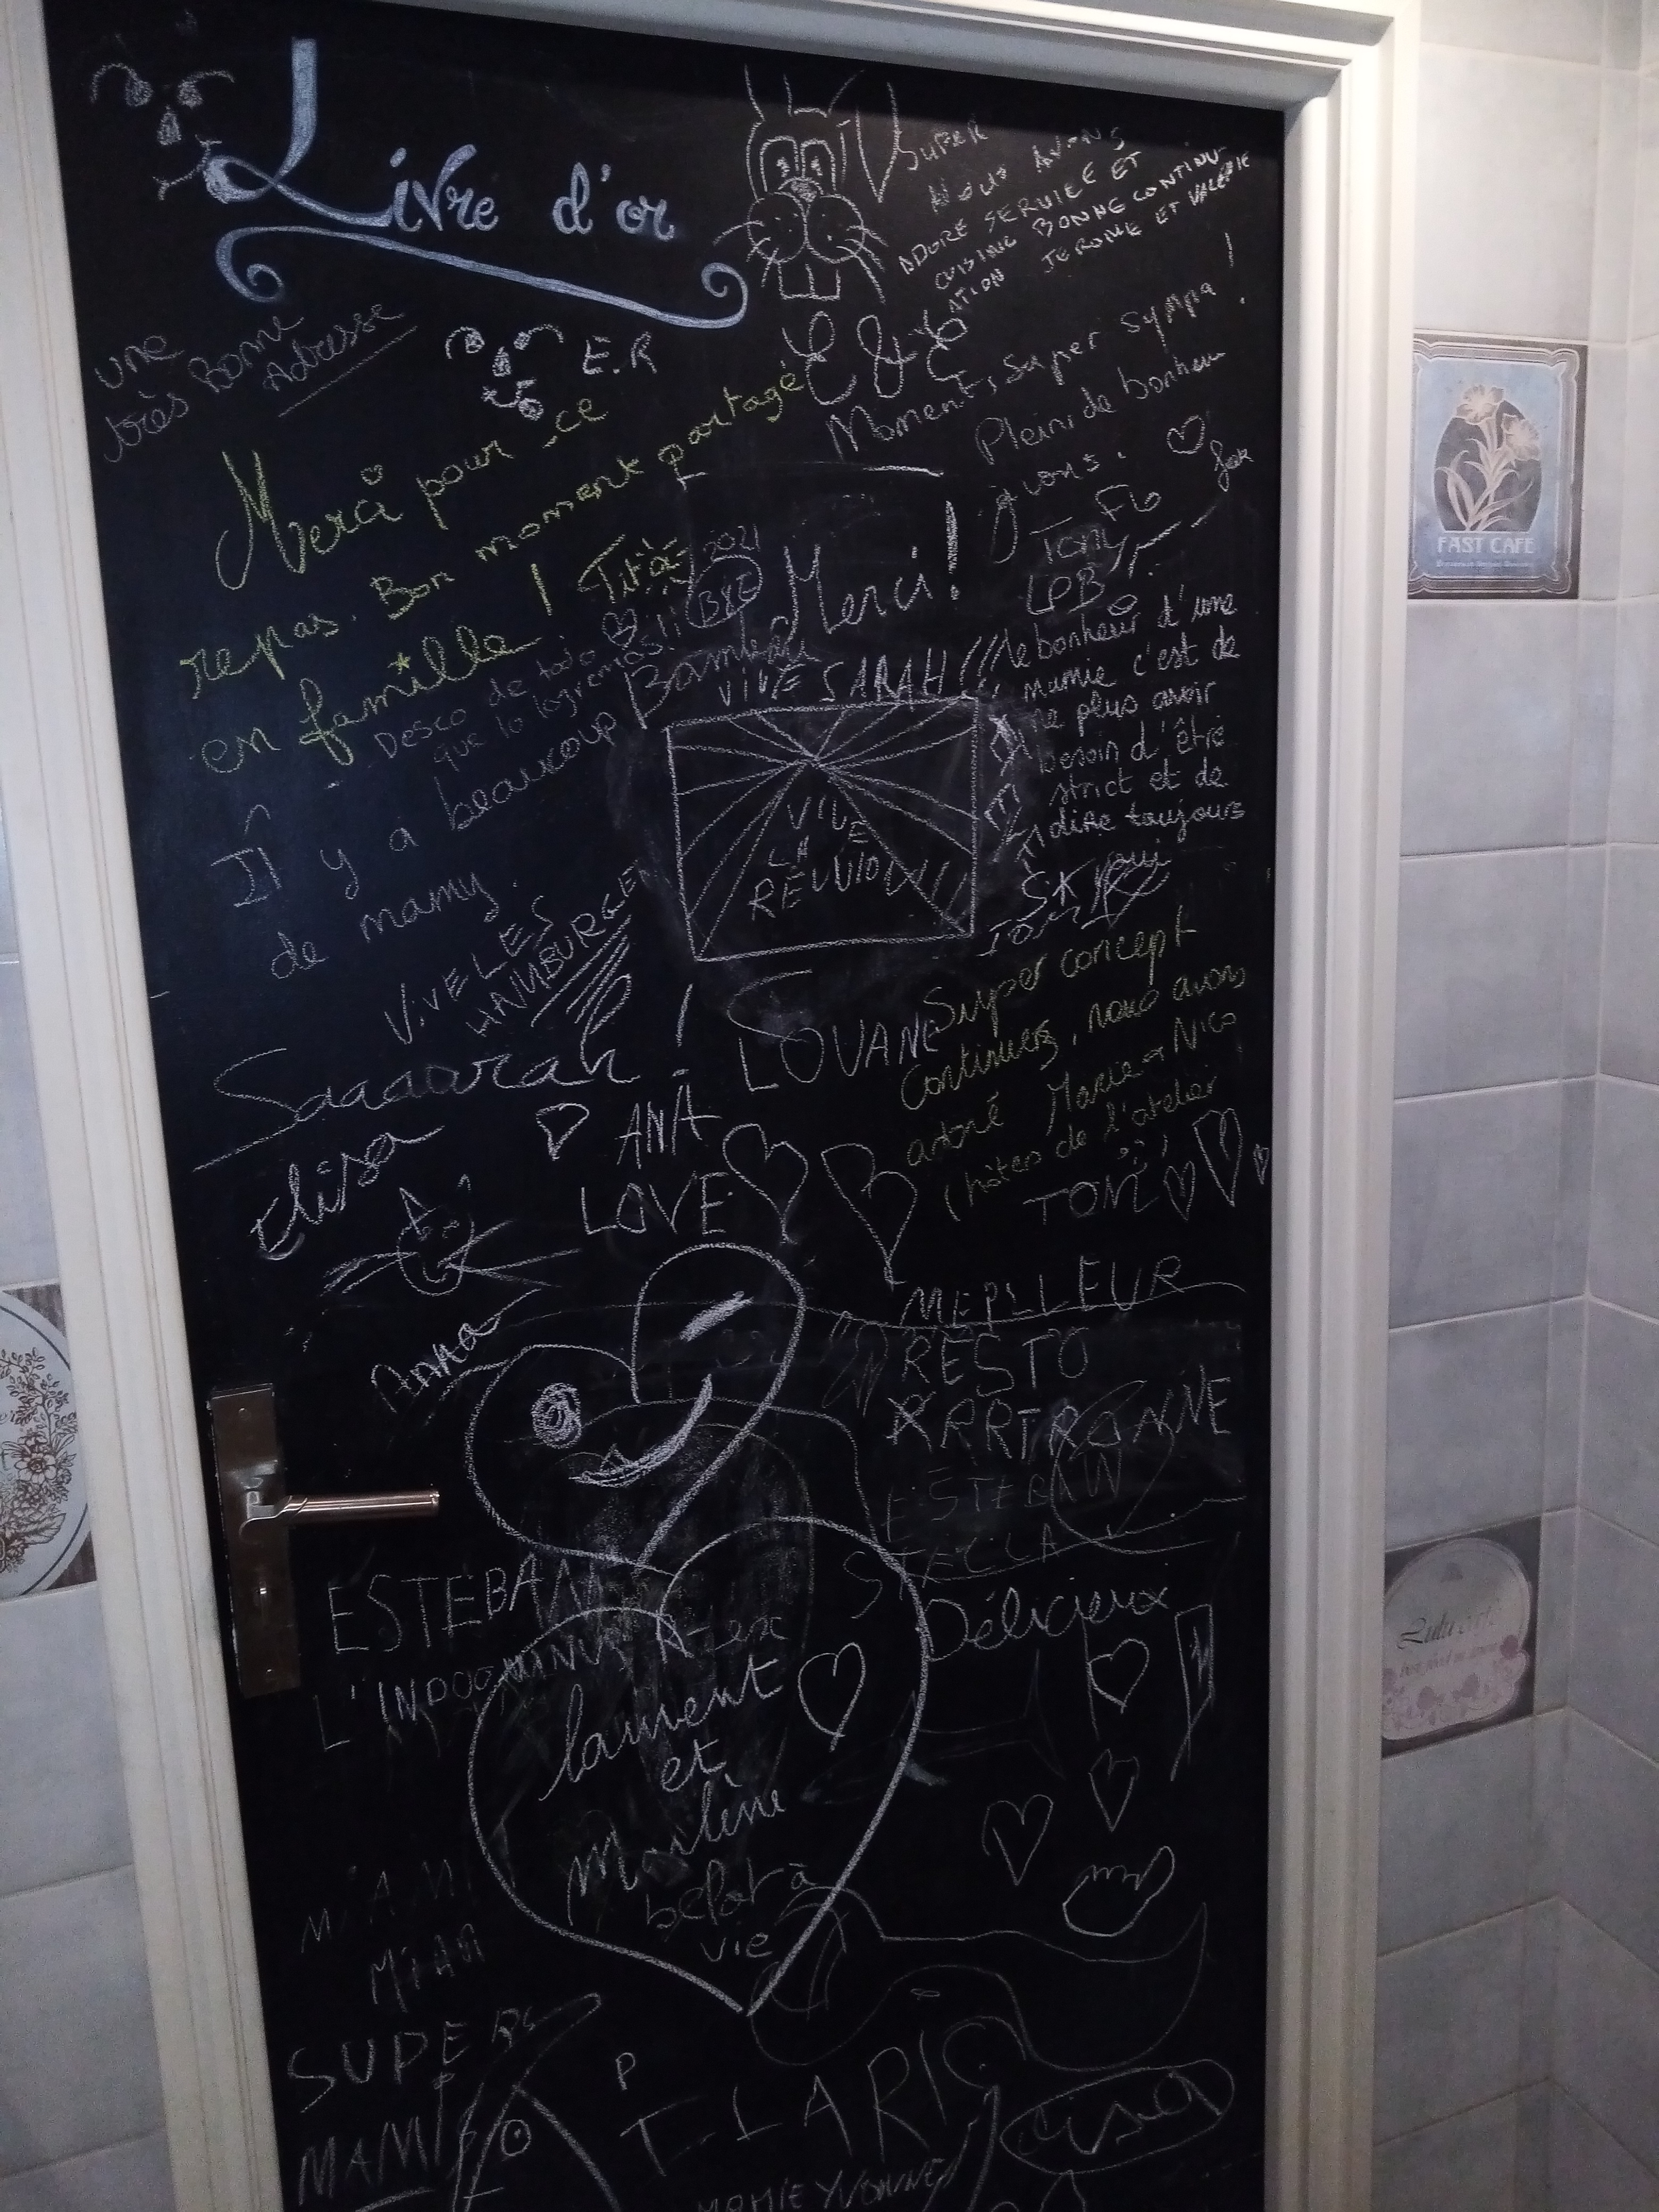 Livre d'or
SUPER
NOUS AVONS
ADORE SERVICE ET
CUISINE BONNE CONTINU-
ATION JEROME ET VALERIE
une
très Bonne
Adresse
E.R
Merci pour ce
repas. Bon moment partagé
en famille ! Titia
Moment super sympa !
Plein de bonheur
à vous.
Flo
Tony
LPB
2021
BYE
Merci!
Deseo de todo
que lo logremos!!
VIVE SARAH !!!
VIVE
LA
REUNION!!
le bonheur d'une
mamie c'est de
ne plus avoir
besoin d'être
strict et de
dire toujours
oui
Il y a beaucoup
de mamy.
VIVE LES
HAMBURGER
Super concept
Continuez, nous avons
adoré Marie et Nico
(hôtes de l'atelier
LOUANE
Saaaarah !
Elisa
ANA
LOVE
TOM
Anna
MEPLLEUR
RESTO
ESTEBAN
STELLA
ESTEBAN
Délicieux
L'INDOOMINUS R-ex
laurent
et
Marlène
vie
MIAM
MIAM
SUPER
MAMIE
P
MAMIE YVONNE
FAST CAFE